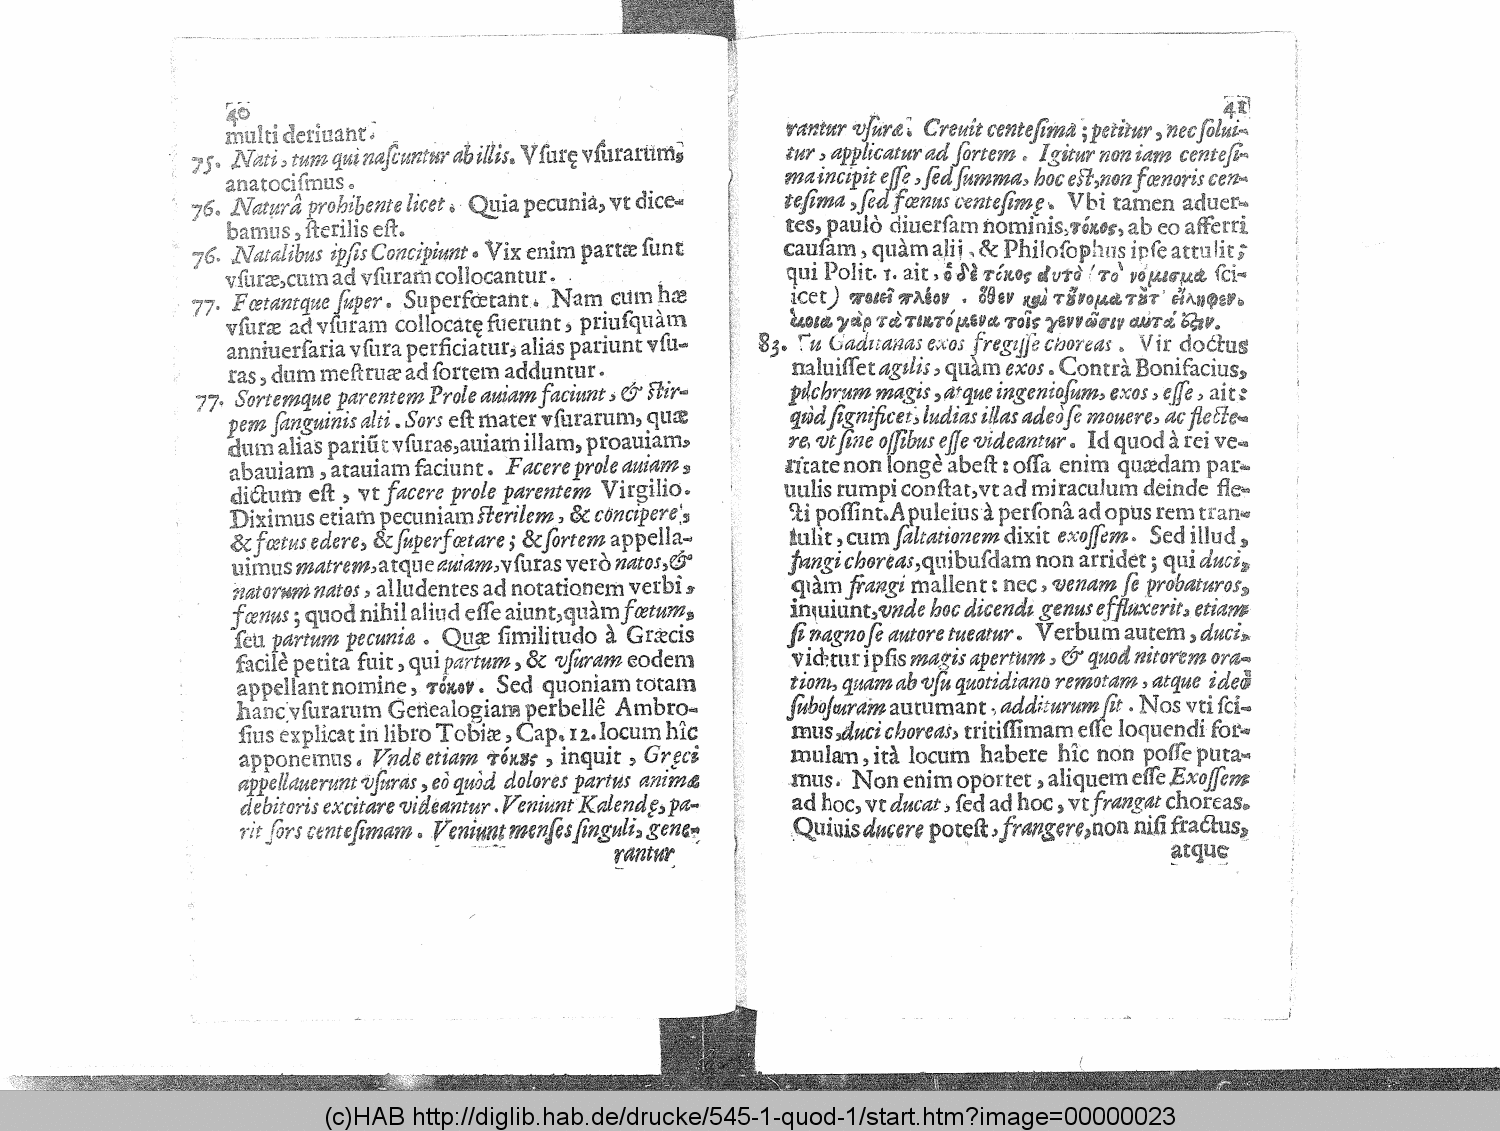 40
multi deriuant.
75. Nati, tum qui naſcuntur ab illis. Vſurę vſurarum,
anatociſmus.
76. Naturâ prohibente licet. Quia pecunia, vt dice-
bamus, ſterilis eſt.
76. Natalibus ipſis Concipiunt. Vix enim partæ ſunt
vſuræ, cum ad vſuram collocantur.
77. Fœtantque ſuper. Superfœtant. Nam cùm hæ
vſuræ ad vſuram collocatę fuerunt, priuſquàm
anniuerſaria vſura perficiatur, alias pariunt vſu-
ras, dum meſtruæ ad ſortem adduntur.
77. Sortemque parentem Prole auiam faciunt, & ſtir-
pem ſanguinis alti. Sors eſt mater vſurarum, quæ
dum alias pariūt vſuras, auiam illam, proauiam,
abauiam, atauiam faciunt. Facere prole auiam,
dictum eſt, vt facere prole parentem Virgilio.
Diximus etiam pecuniam ſterilem, & concipere,
& fœtus edere, & ſuperfœtare; & ſortem appella-
uimus matrem, atque auiam, vſuras verò natos, &
natorum natos, alludentes ad notationem verbi,
fœnus; quod nihil aliud eſſe aiunt, quàm fœtum,
ſeu partum pecuniæ. Quæ ſimilitudo à Græcis
facilè petita fuit, qui partum, & vſuram eodem
appellant nomine, τόκον. Sed quoniam totam
hanc vſurarum Genealogiam perbellê Ambro-
ſius explicat in libro Tobiæ, Cap. 12. locum hîc
apponemus. Vnde etiam τόκος, inquit, Gręci
appellauerunt vſuras, eò quòd dolores partus animæ
debitoris excitare videantur. Veniunt Kalendę, pa-
rit ſors centeſimam. Veniunt menſes ſinguli, gene-
rantur
41
rantur vſuræ. Creuit centeſima; petitur, nec ſolui-
tur, applicatur ad ſortem. Igitur non iam centeſi-
ma incipit eſſe, ſed ſumma, hoc eſt, non fœnoris cen-
teſima, ſed fœnus centeſimę. Vbi tamen aduer-
tes, paulò diuerſam nominis, τόκος, ab eo afferri
cauſam, quàm alij, & Philoſophus ipſe attulit;
qui Polit. 1. ait, ὁ δὲ τόκος αυτὸ (τὸ νόμισμα ſci-
icet) ποιεῖ πλέον. ὅθεν καὶ τὄνομα τȣ̃τ' εἴληφεν.
ὅμοια γὰρ τὰ τικτόμενα τοῖς γεννῶσιν αυτά ἐςιν.
83. Tu Gaditanas exos fregiſſe choreas. Vir doctus
maluiſſet agilis, quàm exos. Contrà Bonifacius,
pulchrum magis, atque ingenioſum, exos, eſſe, ait:
quòd ſignificet, ludias illas adeò ſe mouere, ac flecte-
re, vt ſine oſſibus eſſe videantur. Id quod à rei ve-
ritate non longè abeſt: oſſa enim quædam par-
uulis rumpi conſtat, vt ad miraculum deinde fle-
cti poſſint. Apuleius à perſonâ ad opus rem tran-
tulit, cum ſaltationem dixit exoſſem. Sed illud,
frangi choreas, quibuſdam non arridet; qui duci,
quàm frangi mallent: nec, venam ſe probaturos,
inquiunt, vnde hoc dicendi genus effluxerit, etiam
ſi magno ſe autore tueatur. Verbum autem, duci,
videtur ipſis magis apertum, & quod nitorem ora-
tioni, quam ab vſu quotidiano remotam, atque ideò
ſuboſcuram autumant, additurum ſit. Nos vti ſci-
mus, duci choreas, tritiſſimam eſſe loquendi for-
mulam, ità locum habere hîc non poſſe puta-
mus. Non enim oportet, aliquem eſſe Exoſſem
ad hoc, vt ducat, ſed ad hoc, vt frangat choreas.
Quiuis ducere poteſt, frangere, non niſi fractus,
atque
(c)HAB http://diglib.hab.de/drucke/545-1-quod-1/start.htm?image=00000023